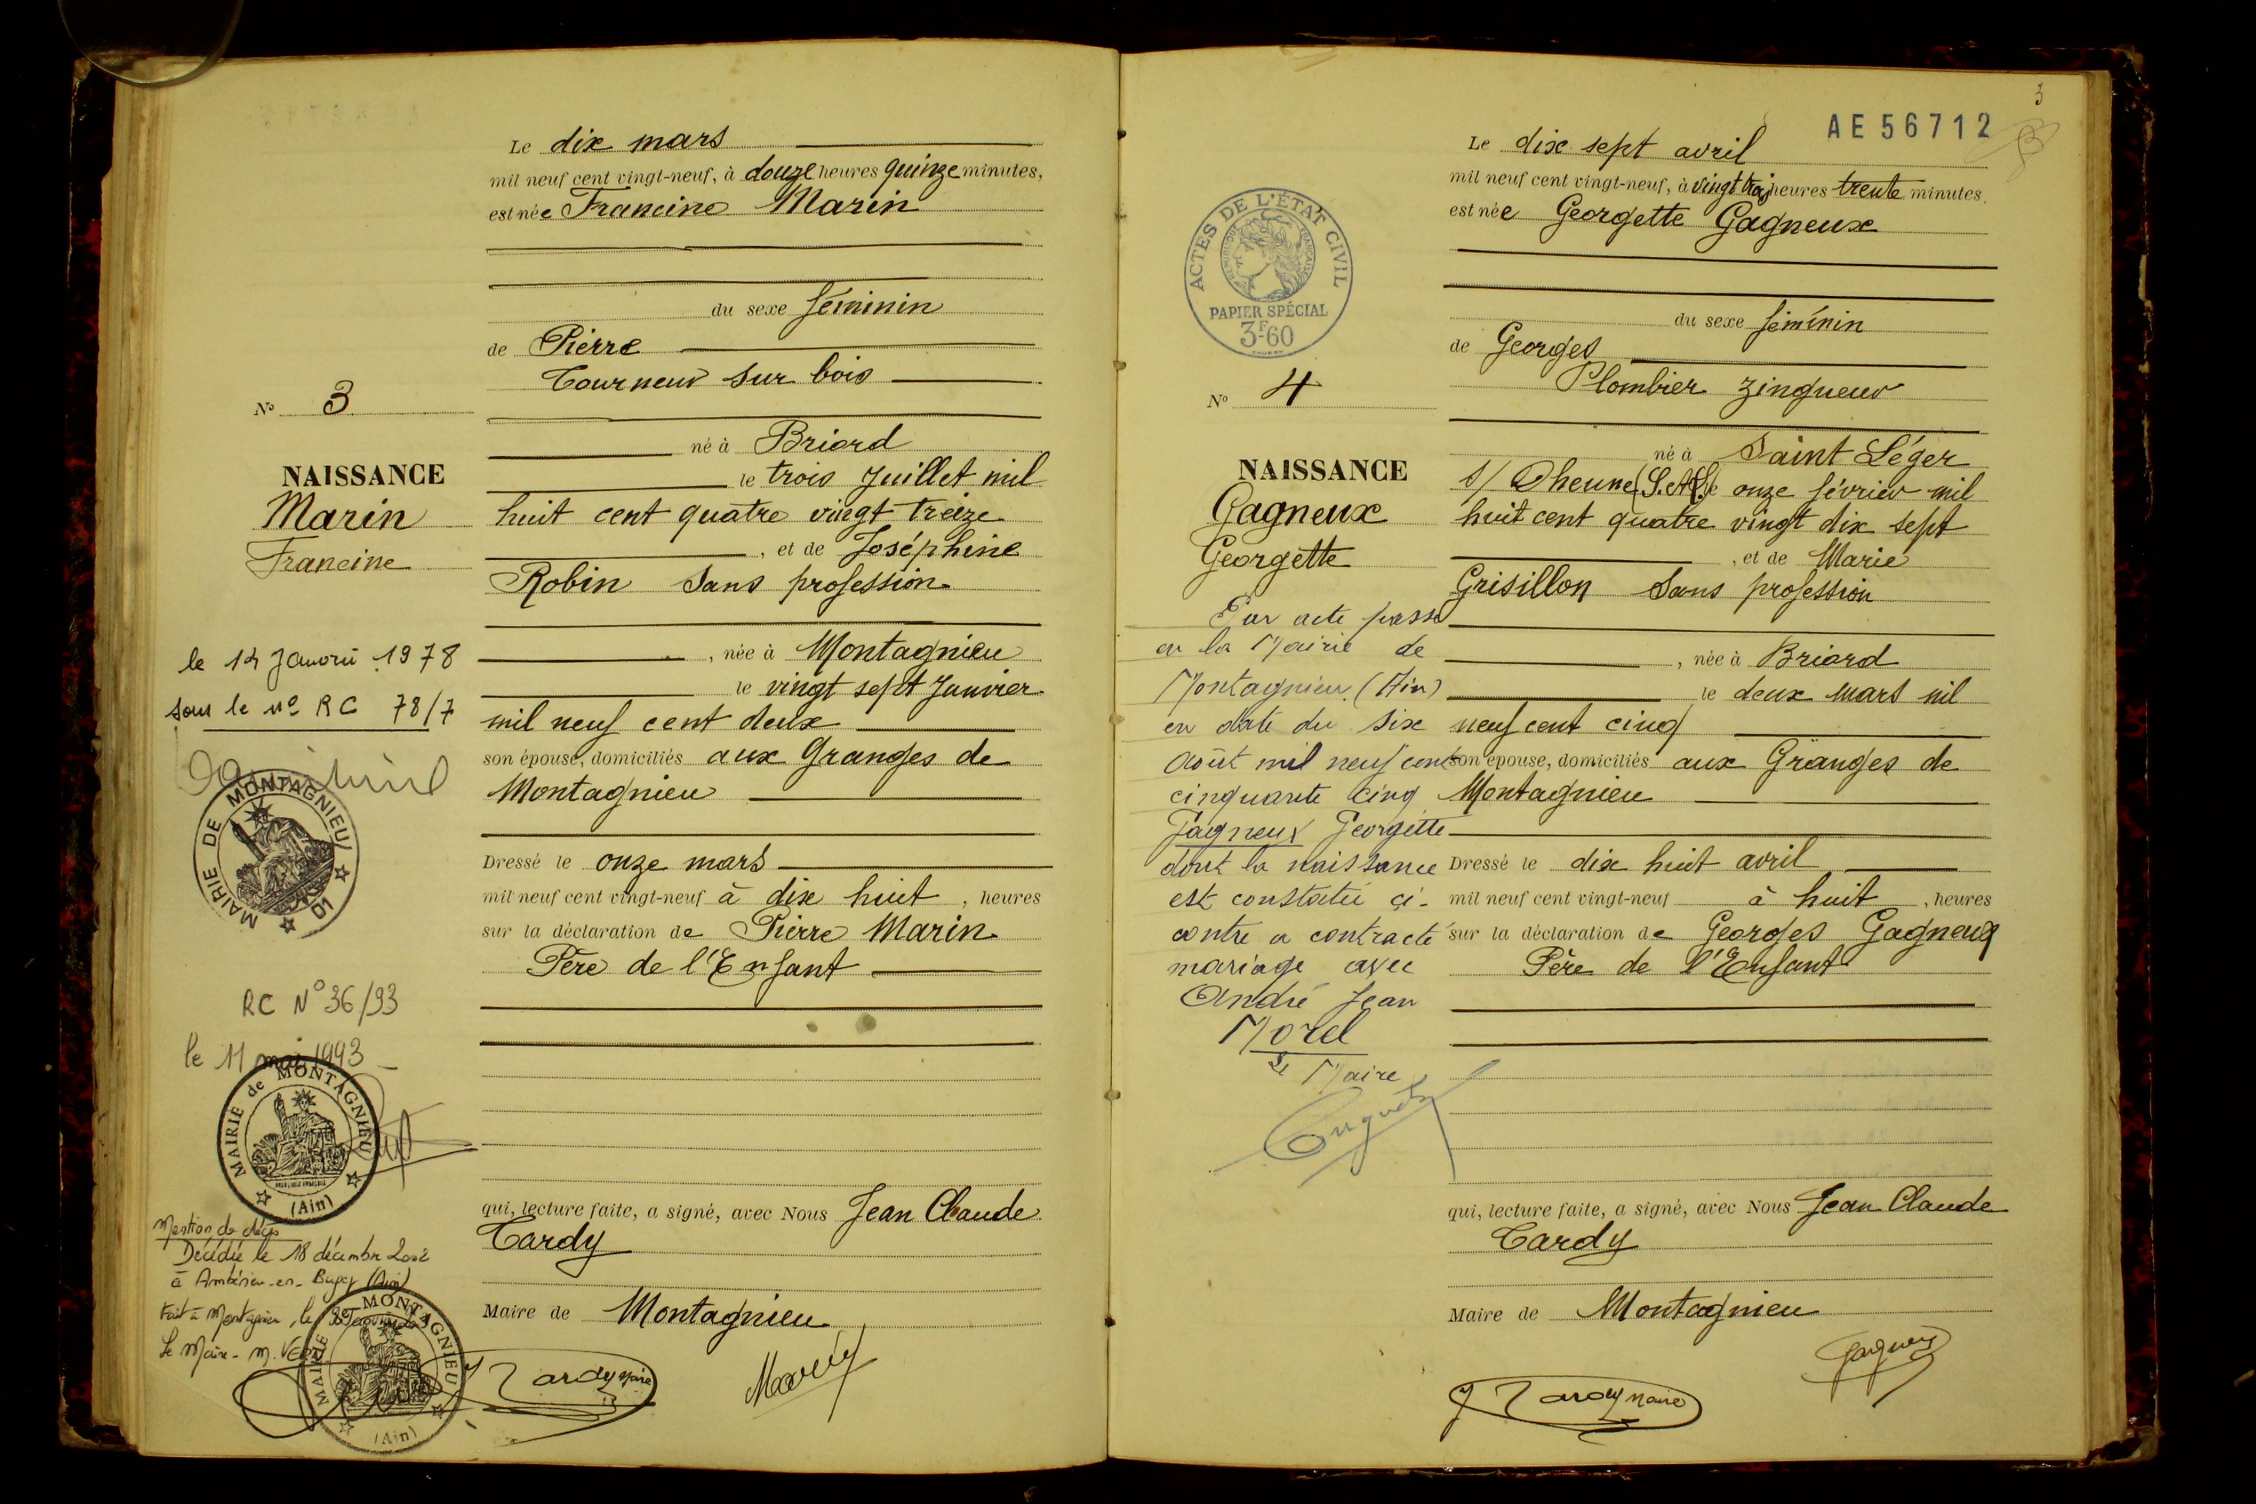 Le dix mars
mil neuf cent vingt-neuf, à douze heures quinze minutes,
est née Francine Marin
du sexe féminin
de Pierre
Tourneur sur bois
né à Briord
le trois Juillet mil
huit cent quatre vingt treize
, et de Joséphine
Robin Sans profession
, née à Montagnieu
le vingt sept Janvier
mil neuf cent deux
son épouse, domiciliés aux Granges de
Montagnieu
Dressé le onze mars
mil neuf cent vingt-neuf à dix huit, heures
sur la déclaration de Pierre Marin
Père de l'Enfant
qui, lecture faite, a signé, avec Nous Jean Claude
Tardy
Maire de Montagnieu
J Tardy Maire
Marin
No 3
NAISSANCE
Marin
Francine
le 12 Janvier 1978
sous le no RC 78/7
MAIRIE DE MONTAGNIEU
01
RC N° 36/93
le 11 mai 1993
MAIRIE de MONTAGNIEU
(Ain)
Mention de décès
Décédée le 18 décembre 2002
à Ambérieu-en-Bugey (Ain)
Fait à Montagnieu, le
Le Maire - M.
MAIRIE de MONTAGNIEU
(Ain)
3
AE 56712
Le dix sept avril
mil neuf cent vingt-neuf, à vingt trois heures trente minutes.
est née Georgette Gagneux
du sexe féminin
de Georges
Plombier Zingueur
né à Saint Léger
s/ Dheune (S. et L.) le onze février mil
huit cent quatre vingt dix sept
, et de Marie
Grisillon Sans profession
, née à Briord
le deux mars mil
neuf cent cinq
son épouse, domiciliés aux Granges de
Montagnieu
Dressé le dix huit avril
mil neuf cent vingt-neuf à huit, heures
sur la déclaration de Georges Gagneux
Père de l'Enfant
qui, lecture faite, a signé, avec Nous Jean Claude
Tardy
Maire de Montagnieu
Gagneux
J Tardy Maire
ACTES DE L'ÉTAT CIVIL
RÉPUBLIQUE FRANÇAISE
PAPIER SPÉCIAL
3F60
No 4
NAISSANCE
Gagneux
Georgette
Par acte passé
en la Mairie de
Montagnieu (Ain)
en date du six
Août mil neuf cent
cinquante cinq
Gagneux Georgette
dont la naissance
est constatée ci-
contre a contracté
mariage avec
André Jean
Morel
Le Maire